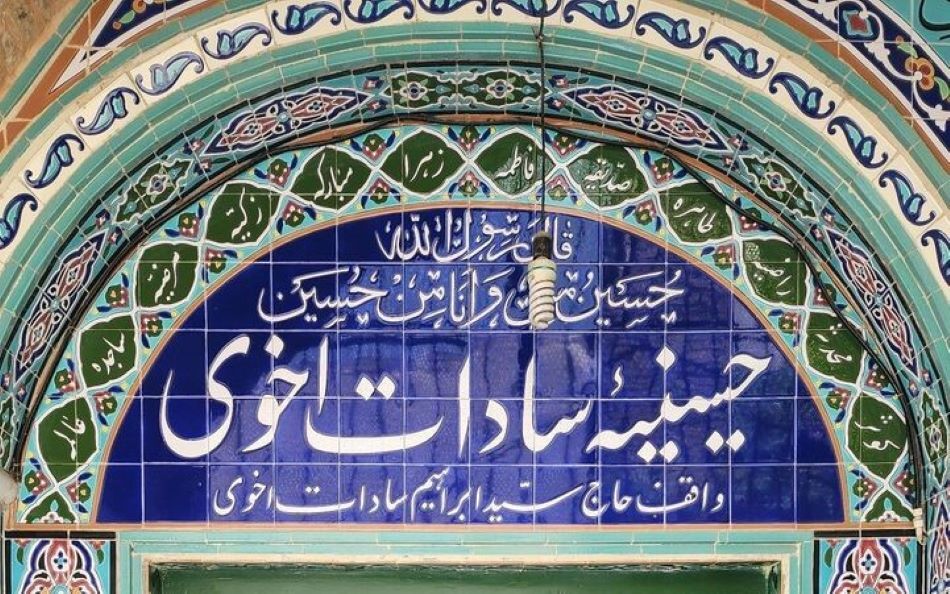 قال رسول الله
حسین منی وانا من حسین
حسینیه سادات اخوی
واقف حاج سید ابراهیم سادات اخوی
طاهره
صدیقه
فاطمه
زهرا
مبارکه
زکیه
راضیه
ساجده